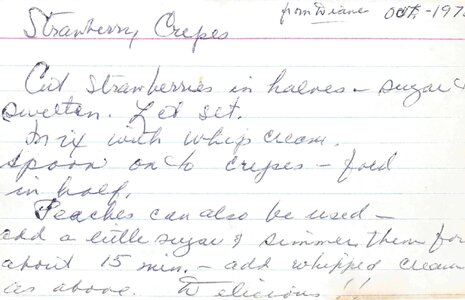 from Diane Oct, -197
Strawberry Crepes
Cut strawberries in halves - sugar &
swelten. Let set.
Mix with whip cream.
Spoon onto crepes - fold
in half.
Peaches can also be used -
add a little sugar & simmer them for
about 15 min. - add whipped cream
as above. Delicious !!